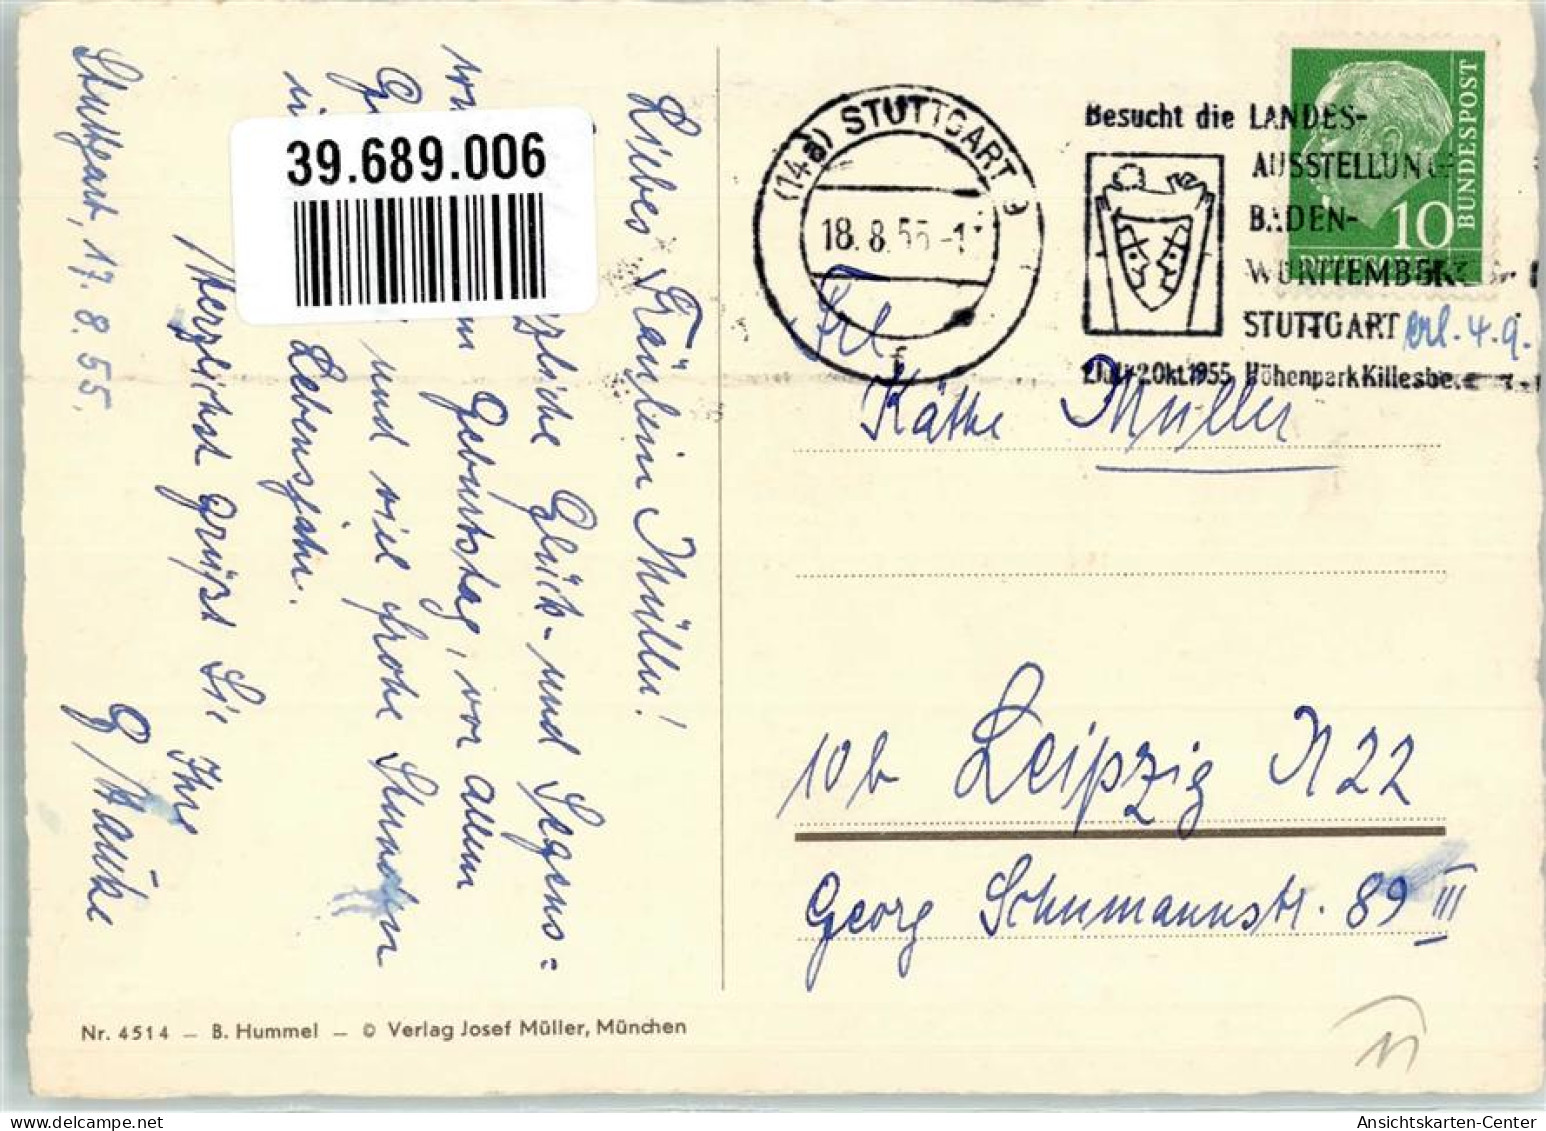 Stuttgart, 17. 8. 55.
Liebes Fräulein Müller!
zliche Glück- und Segens=
Geburtstag, vor allem
und viel frohe Stunden
Lebensjahr.
Herzlichst grüßt Sie
Ihre
G. Hauke
39.689.006
Nr. 4514 – B. Hummel – © Verlag Josef Müller, München
(14a) STUTTGART 9
18. 8. 55
f
Besucht die LANDES-
AUSSTELLUNG
BADEN-
WÜRTTEMBERG
STUTTGART
2.Okt.1955 Höhenpark Killesbe
10
BUNDESPOST
DEUTSCHE
erl. 4.9.
Frl.
Käthe Müller
10b Leipzig N 22
Georg Schumannstr. 89 III
Ansichtskarten-Center